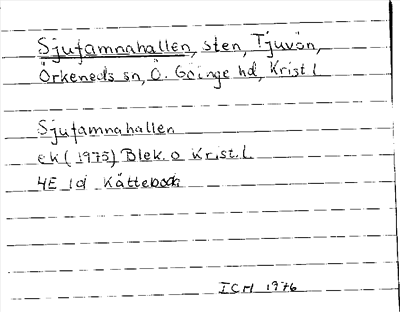 Sjufamnahallen, sten, Tjuvön,
Örkeneds sn, Ö. Göinge hd, Krist l
Sjufamnahallen
ek (1975) Blek. o Krist. l.
4E 1d Kätteboda
ICH 1976